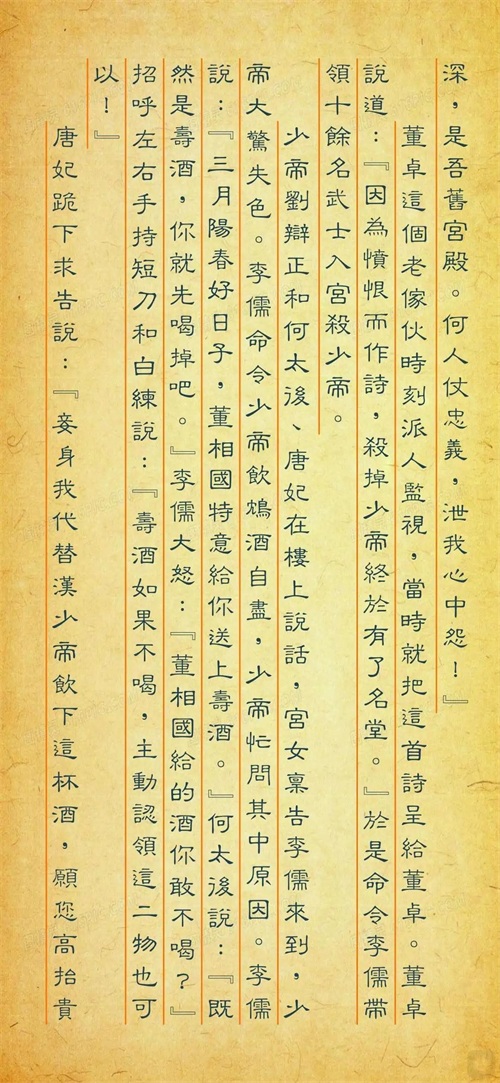 深，是吾舊宮殿。何人仗忠義，泄我心中怨！』
董卓這個老傢伙時刻派人監視，當時就把這首詩呈給董卓。董卓
說道：『因為憤恨而作詩，殺掉少帝終於有了名堂。』於是命令李儒帶
領十餘名武士入宮殺少帝。
少帝劉辯正和何太後、唐妃在樓上說話，宮女稟告李儒來到，少
帝大驚失色。李儒命令少帝飲鴆酒自盡，少帝忙問其中原因。李儒
說：『三月陽春好日子，董相國特意給你送上壽酒。』何太後說：『既
然是壽酒，你就先喝掉吧。』李儒大怒：『董相國給的酒你敢不喝？』
招呼左右手持短刀和白練說：『壽酒如果不喝，主動認領這二物也可
以！』
唐妃跪下求告說：『妾身我代替漢少帝飲下這杯酒，願您高抬貴